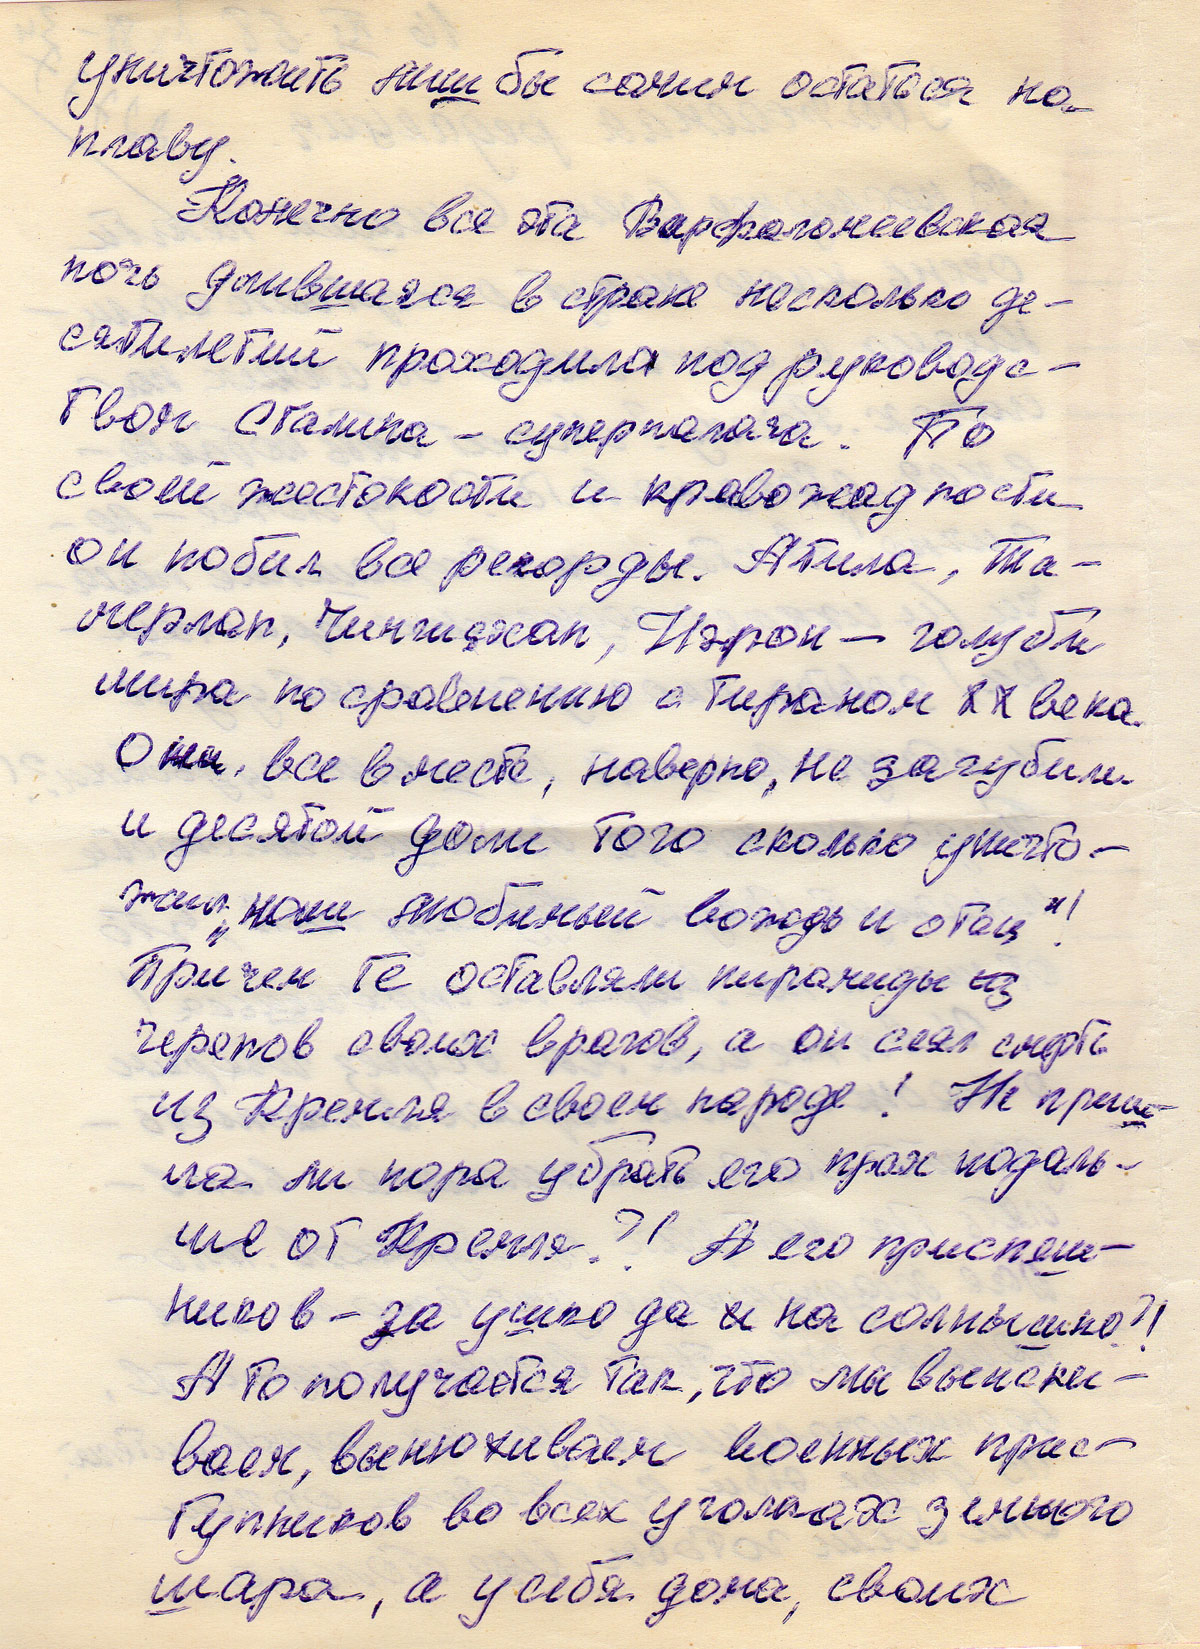 уничтожить лишбы самим остаться на-
плаву.
Конечно вся эта Варфаломеевская
ночь длившаяся в стране несколько де-
сятилетий проходила под руководс-
твом Сталина – суперпалача. По
своей жестокости и кровожадности
он побил все рекорды. Атила, Та-
мерлан, Чингизхан, Нэрон – голуби
мира по сравнению с тираном XX века.
Они, все вместе, наверно, не загубили
и десятой доли того сколько уничто-
жил „наш любимый вождь и отец"!
Причем те оставляли пирамиды из
черепов своих врагов, а он сеял смерть
из Кремля в своем народе! Не приш-
ла ли пора убрать его прах подаль-
ше от Кремля?! А его приспеш-
ников – за ушко да и на солнышко?!
А то получается так, что мы выиски-
ваем, вынюхиваем военных прес-
тупников во всех уголках земного
шара, а у себя дома, своих